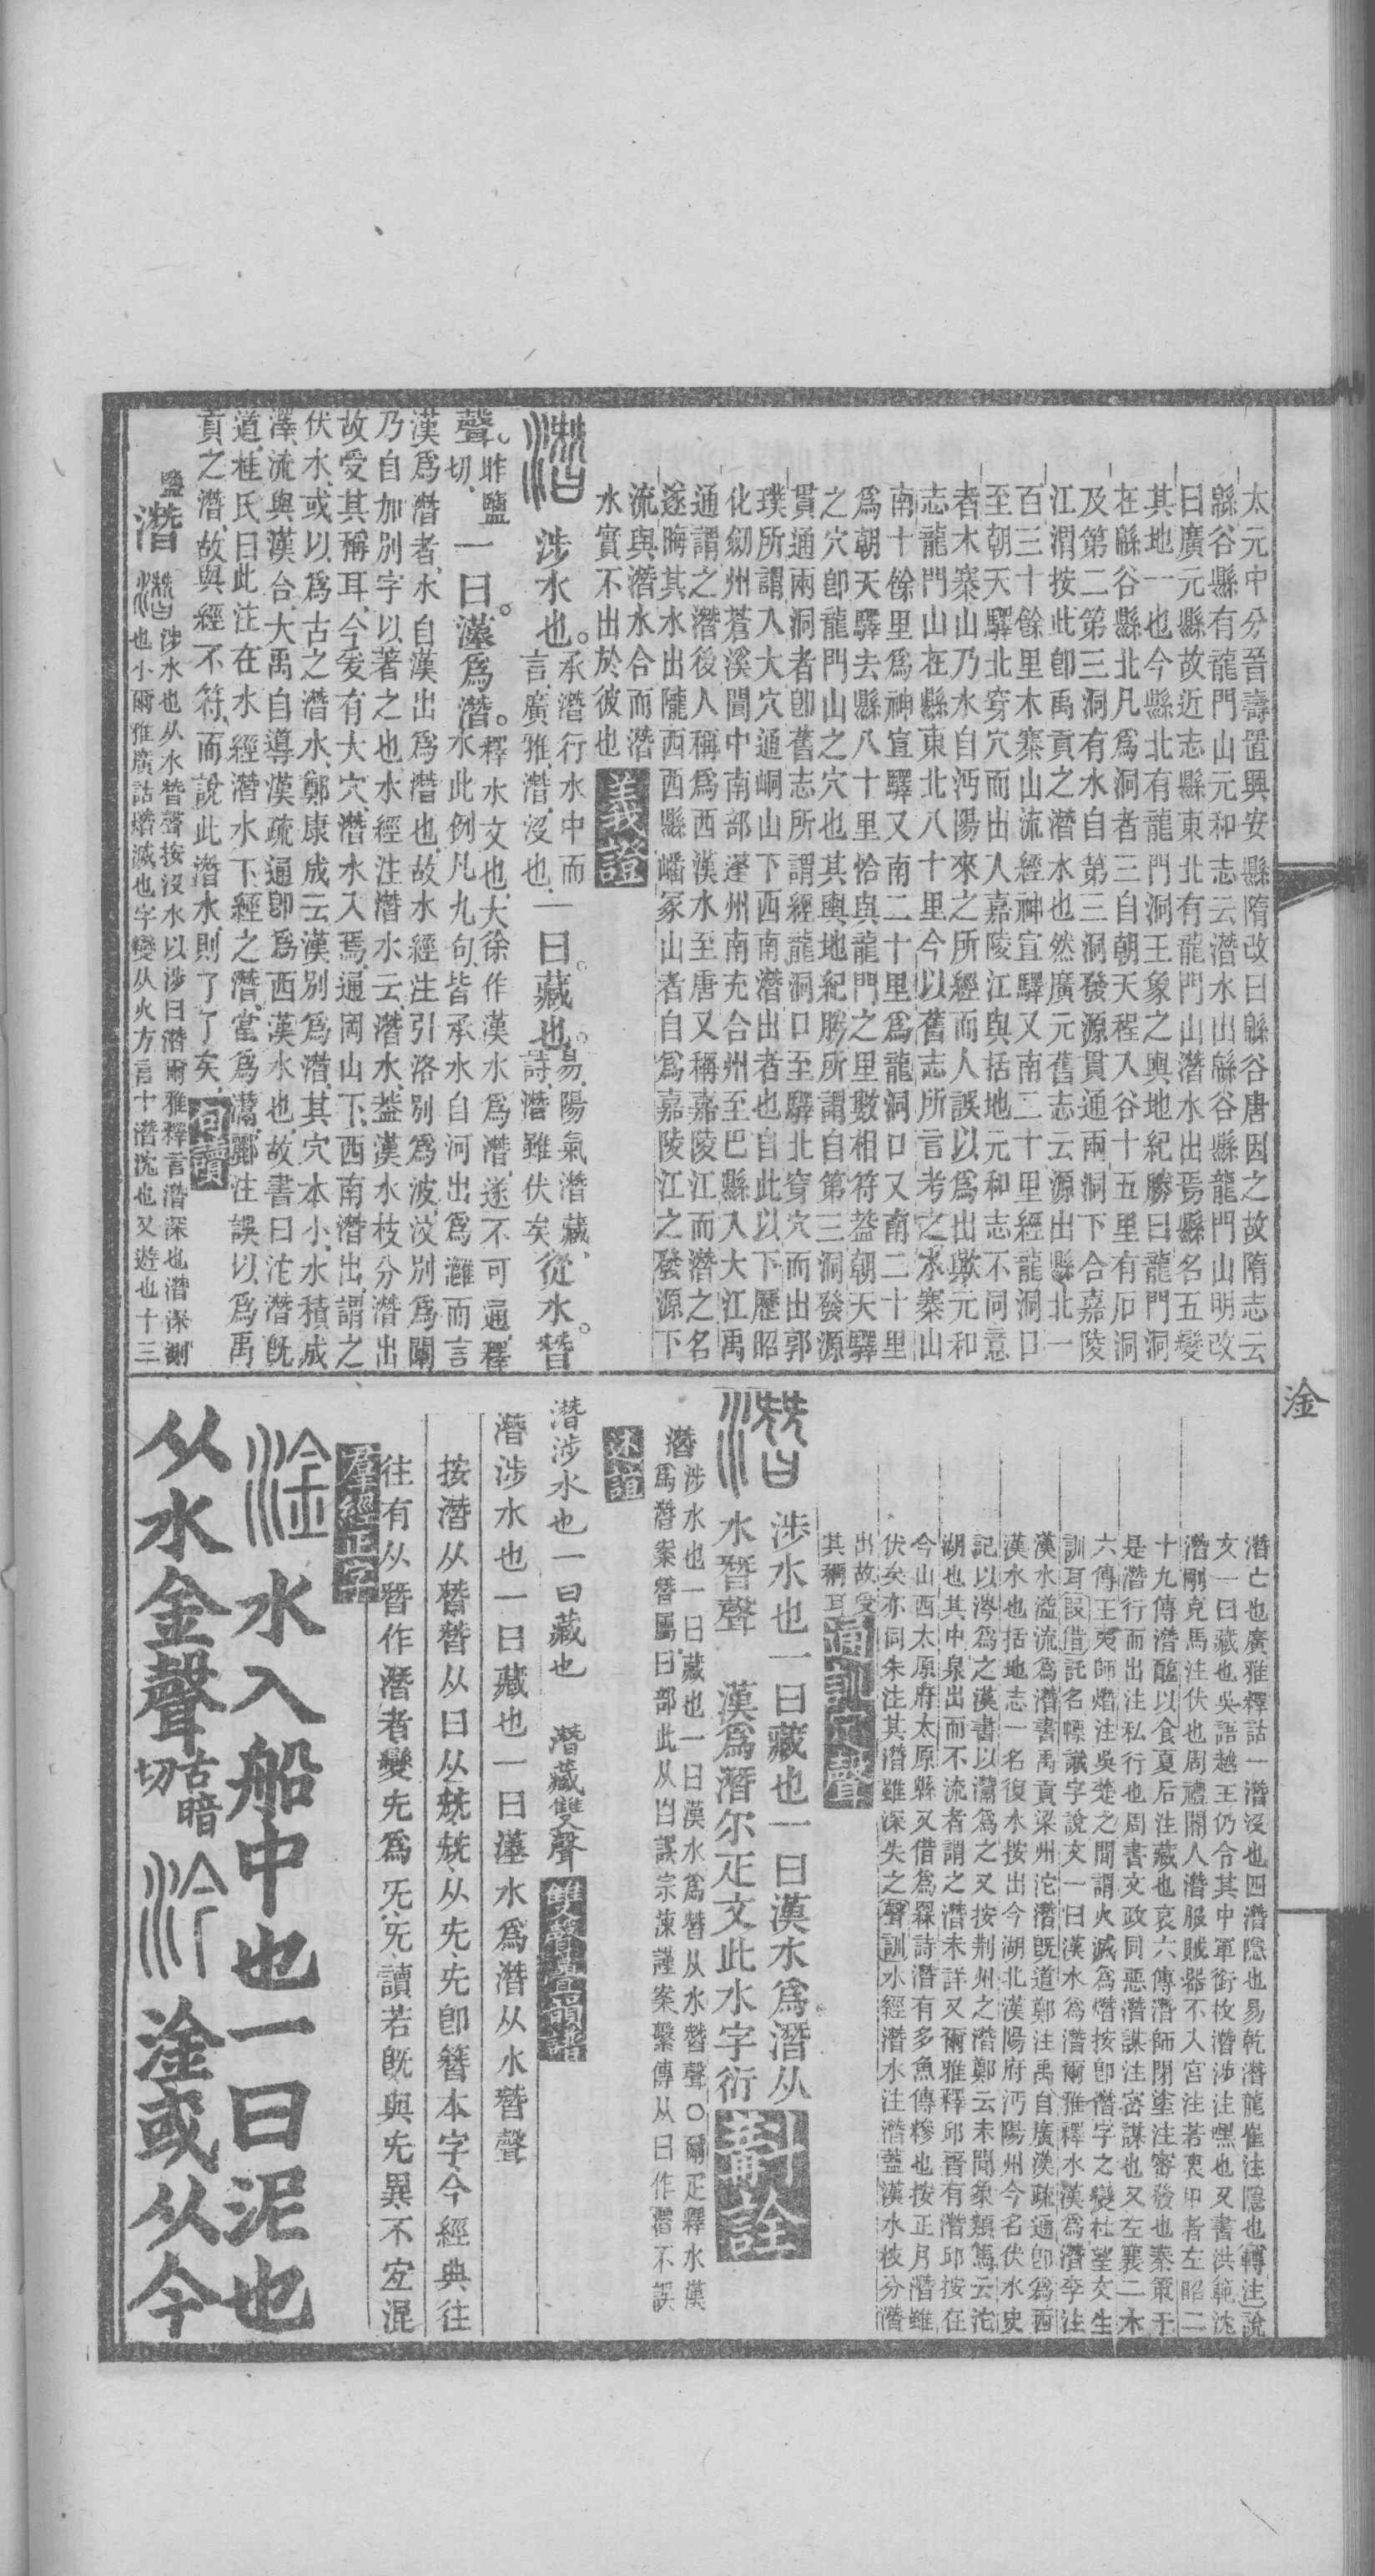 太元中分晉壽置興安縣隋改曰緜谷唐因之故隋志云
緜谷縣有龍門山元和志云潛水出緜谷縣龍門山明改
曰廣元縣故近志縣東北有龍門山潛水出焉縣名五變
其地一也今縣北有龍門洞王象之輿地紀勝曰龍門洞
在緜谷縣北凡爲洞者三自朝天程入谷十五里有石洞
及第二第三洞有水自第三洞發源貫通兩洞下合嘉陵
江渭按此卽禹貢之潛水也然廣元舊志云源出縣北一
百三十餘里木寨山流經神宣驛又南二十里經龍洞口
至朝天驛北穿穴而出人嘉陵江與括地元和志不同意
者木寨山乃水自沔陽來之所經而人誤以爲出歟元和
志龍門山在縣東北八十里今以舊志所言考之木寨山
南十餘里爲神宣驛又南二十里爲龍洞口又南二十里
爲朝天驛去縣八十里恰與龍門之里數相符葢朝天驛
之穴卽龍門山之穴也其輿地紀勝所謂自第三洞發源
貫通兩洞者卽舊志所謂經龍洞口至驛北穿穴而出郭
璞所謂入大穴通峒山下西南潛出者也自此以下歷昭
化劒州蒼溪閬中南部蓬州南充合州至巴縣入大江禹
通謂之潛後人稱爲西漢水至唐又稱嘉陵江而潛之名
遂晦其水出隴西西縣嶓冢山者自爲嘉陵江之發源下
流與潛水合而潛
水實不出於彼也 義證
潛 涉水也。承潛行水中而言、廣雅、潛、沒也、一曰。藏也。易、陽氣潛藏、詩、潛雖伏矣、從水。朁
聲。昨鹽切、一曰。漢爲潛。釋水文也、大徐作漢水爲潛、遂不可通、釋水此例凡九句、皆承水自河出爲灉而言
漢爲潛者、水自漢出爲潛也、故水經注引洛別爲波、汶別爲闡
乃自加別字以著之也、水經注潛水云、潛水、葢漢水枝分潛出
故受其稱耳、今爰有大穴、潛水入焉、通岡山下、西南潛出、謂之
伏水、或以爲古之潛水、鄭康成云、漢別爲潛、其穴本小、水積成
澤、流與漢合、大禹自導漢疏通、卽爲西漢水也、故書曰沱潛旣
道、桂氏曰、此注在水經潛水下、經之潛、當爲灊、酈注誤以爲禹
貢之潛、故與經不符、而說此潛水、則了了矣、句讀
鹽 潛 涉水也从水朁聲按沒水以涉曰潛爾雅釋言潛深也潛深測
也小爾雅廣詁熸滅也字變从火方言十潛沈也又遊也十三
淦
潛亡也廣雅釋詁一潛沒也四潛隱也易乾潛龍崔注隱也轉注說
文一曰藏也吳語越王仍令其中軍銜枚潛涉注嘿也又書洪範沈
潛剛克馬注伏也周禮閽人潛服賊器不入宮注若衷甲者左昭二
十九傳潛醢以食夏后注藏也哀六傳潛師閉塗注審發也秦策于
是潛行而出注私行也周書文政同惡潛謀注密謀也又左襄二木
六傳王夷師熸注吳楚之間謂火滅爲熸按卽潛字之變杜望文生
訓耳叚借託名幖識字說文一曰漢水爲潛爾雅釋水漢爲潛李注
漢水溢流爲潛書禹貢梁州沱潛旣道鄭注禹自廣漢疏通卽爲西
漢水也括地志一名復水按出今湖北漢陽府沔陽州今名伏水史
記以涔爲之漢書以灊爲之又按荆州之潛鄭云未聞象類馬云沱
湖也其中泉出而不流者謂之潛未詳又爾雅釋邱晉有潛邱按在
今山西太原府太原縣又借爲罧詩潛有多魚傳糝也按正月潛雖
伏矣亦同朱注其潛雖深失之聲訓水經潛水注潛葢漢水枝分潛
出故受
其稱耳 通訓定聲
潛 涉水也一曰藏也一曰漢水爲潛从
水朁聲 漢爲潛尔疋文此水字衍 斠詮
潛 涉水也一曰藏也一曰漢水爲朁从水朁聲○爾疋釋水漢
爲潛案朁屬曰部此从㫐誤宗涑謹案繫傳从曰作潛不誤
述誼
潛涉水也一曰藏也 潛藏雙聲 雙聲疊韻譜
潛涉水也一曰藏也一曰漢水爲潛从水朁聲
按潛从朁朁从曰从兓兓从兂兂卽簪本字今經典往
往有从朁作潛者變兂爲旡旡讀若旣與兂異不宜混
羣經正字
淦 水入船中也一曰泥也
从水金聲古暗切 汵 淦或从今